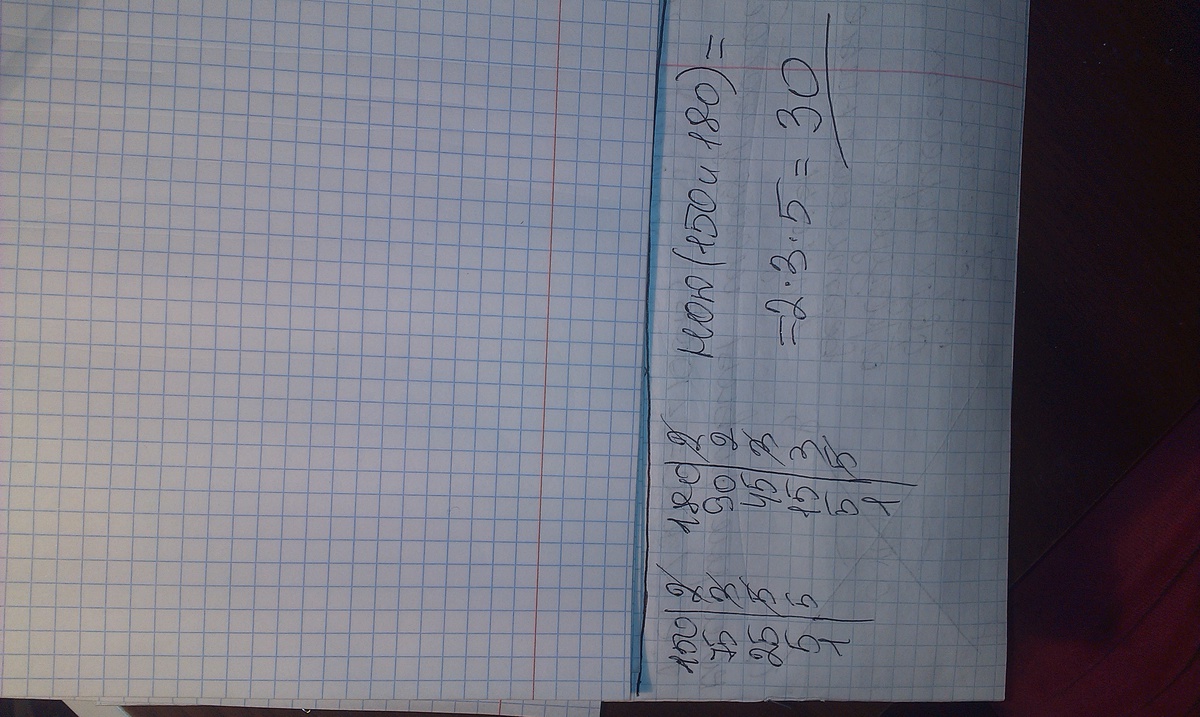 150 | 2
75 | 3
25 | 5
5 | 5
1
180 | 2
90 | 2
45 | 3
15 | 3
5 | 5
1
НОЮ (150 и 180) =
= 2 · 3 · 5 = 30